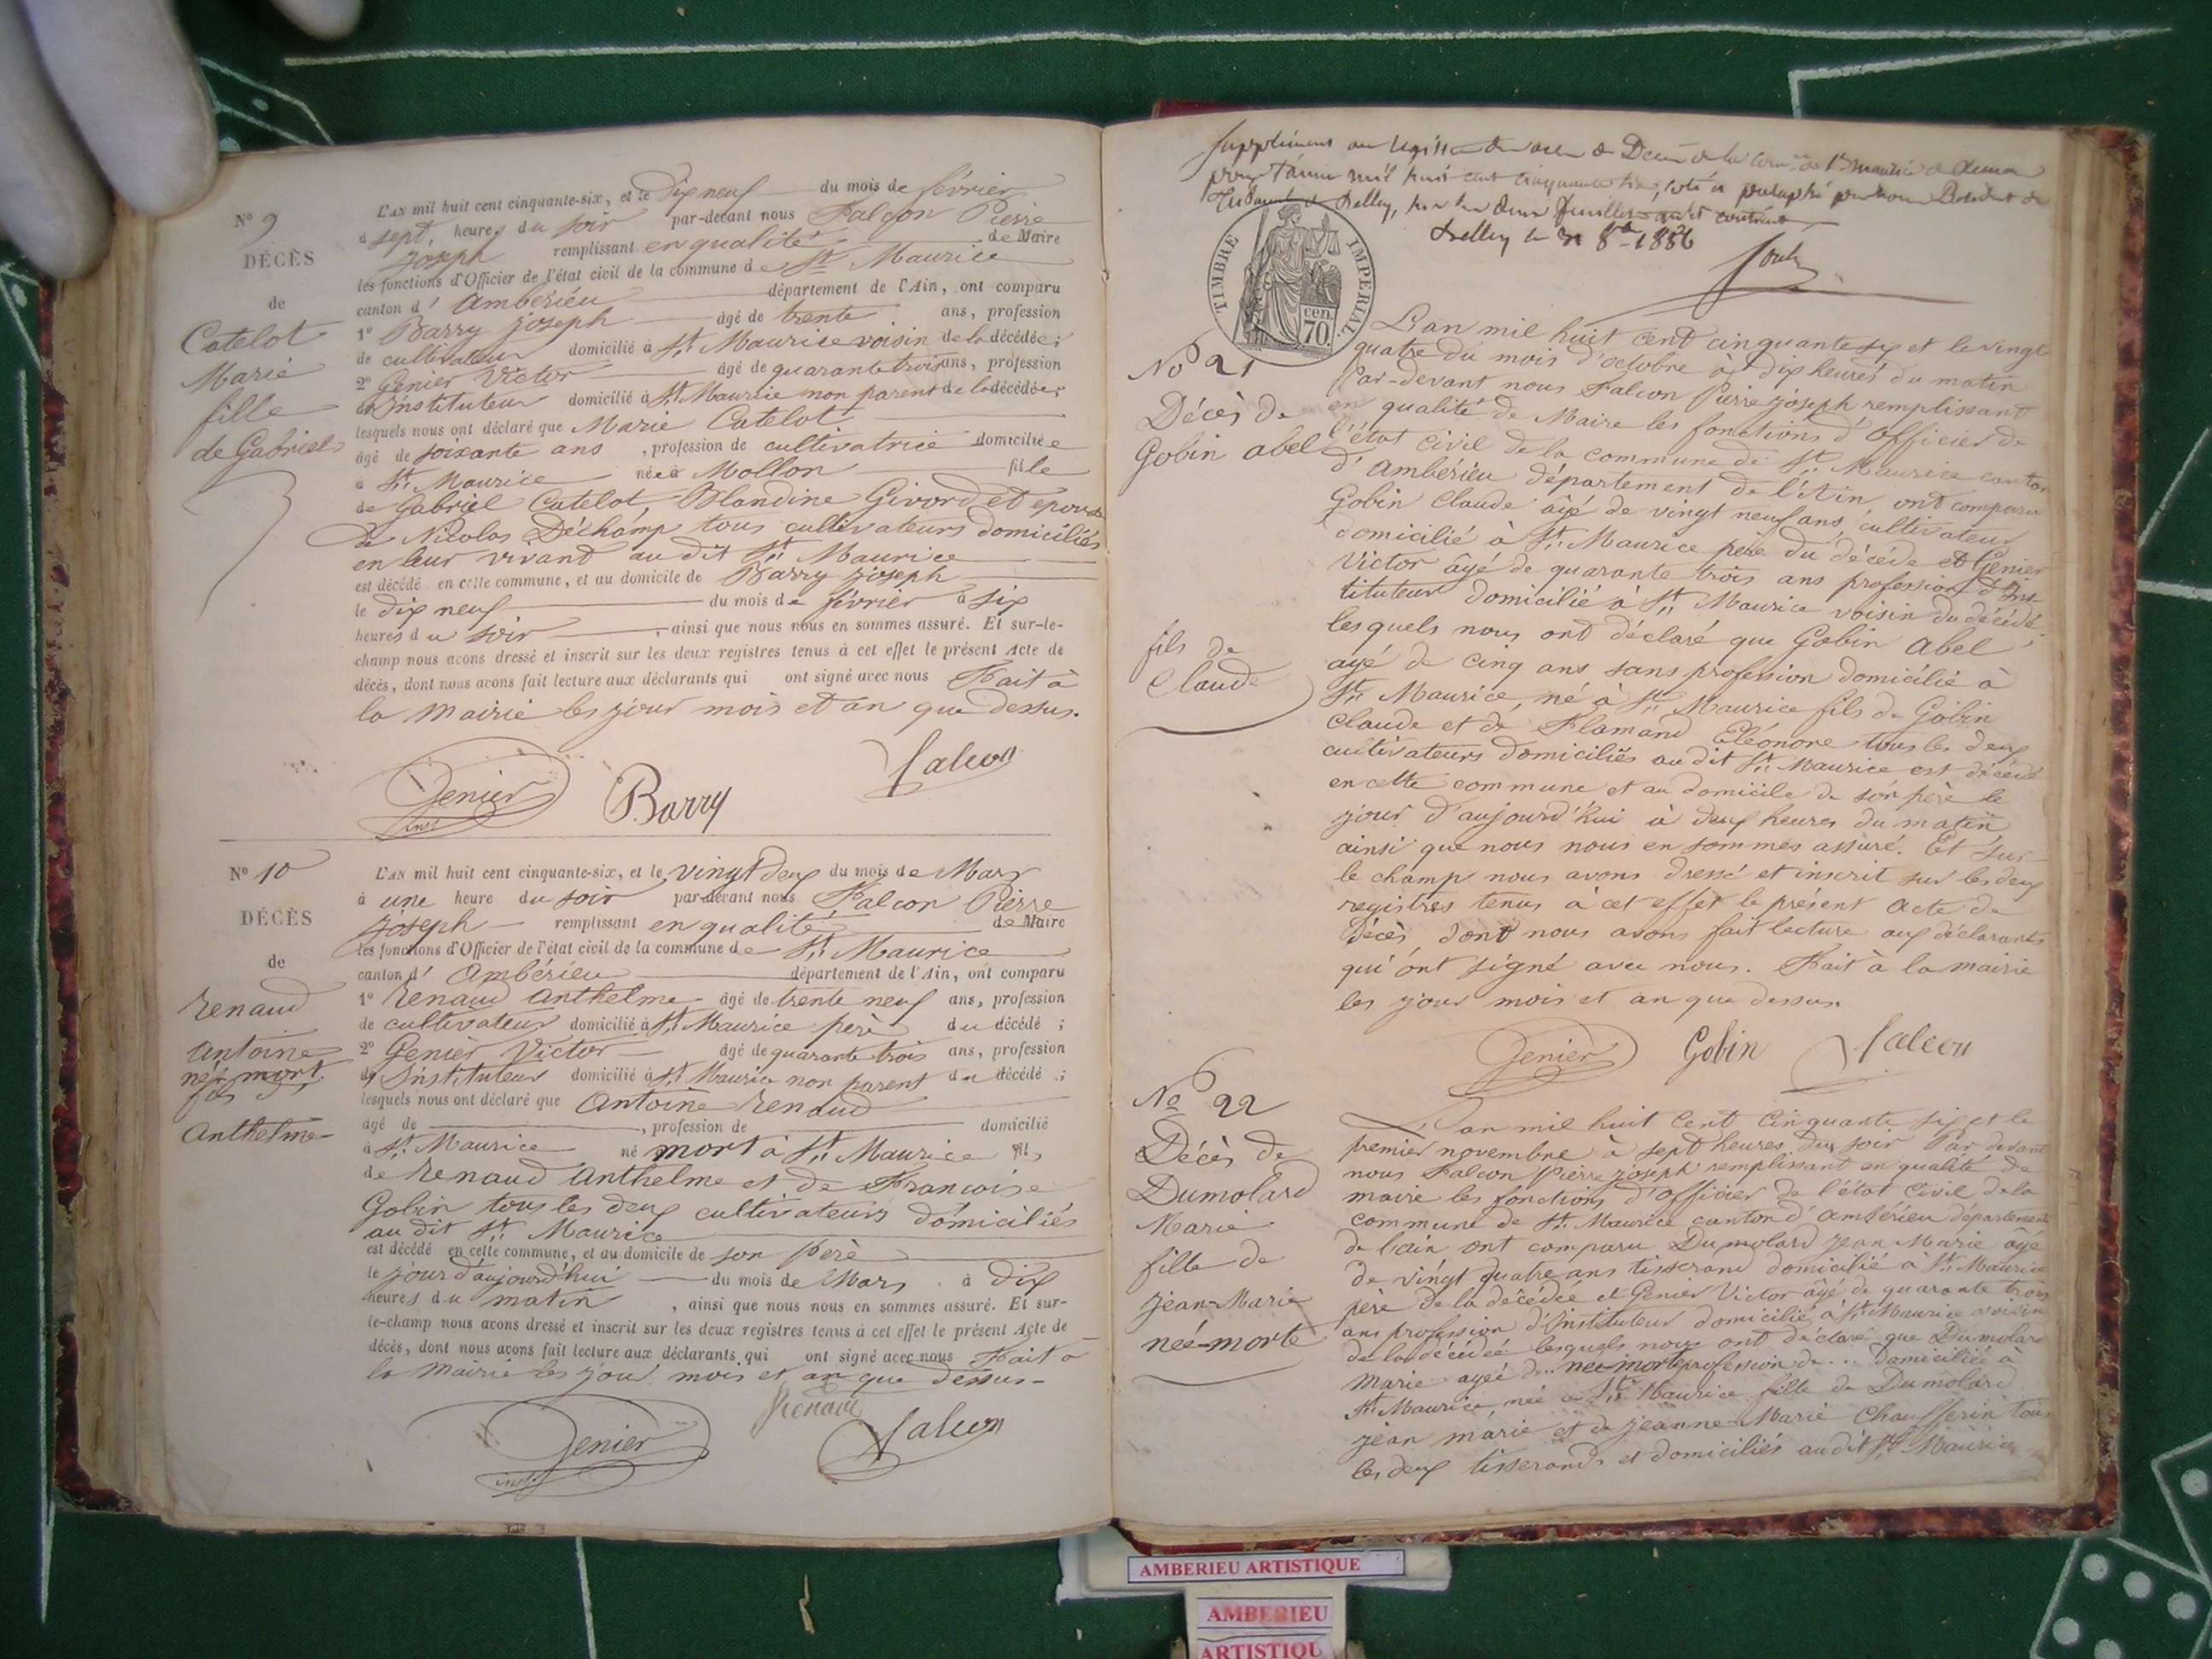 N° 9
DÉCÈS
de
Catelot
Marie
fille
de Gabriel
L'AN mil huit cent cinquante-six, et le dix neuf du mois de février
à sept, heures du soir par-devant nous Falcon Pierre
joseph remplissant en qualité de Maire
les fonctions d'Officier de l'état civil de la commune de St. Maurice
canton d'ambérieu département de l'Ain, ont comparu
1° Barry joseph âgé de trente ans, profession
de cultivateur domicilié à St. Maurice voisin de la décédée;
2° Genier Victor âgé de quarante trois ans, profession
d'Instituteur domicilié à St. Maurice non parent de la décédée;
lesquels nous ont déclaré que Marie Catelot
âgé de soixante ans, profession de cultivatrice domiciliée
à St. Maurice née à Mollon fille
de Gabriel Catelot, Blandine Givord et épouse
de Nicolas Déchamp tous cultivateurs domiciliés
en leur vivant au dit St. Maurice
est décédé en cette commune, et au domicile de Barry joseph
le dix neuf du mois de février à six
heures du soir, ainsi que nous nous en sommes assuré. Et sur-le-
champ nous avons dressé et inscrit sur les deux registres tenus à cet effet le présent Acte de
décès, dont nous avons fait lecture aux déclarants qui ont signé avec nous Fait à
la mairie les jour mois et an que dessus.
Genier Barry Falcon
inst
N° 10
DÉCÈS
de
Renaud
antoine
né mort
fils
anthelme
L'AN mil huit cent cinquante-six, et le vingt deux du mois de Mars
à une heure du soir par-devant nous Falcon Pierre
joseph remplissant en qualité de Maire
les fonctions d'Officier de l'état civil de la commune de St. Maurice
canton d'ambérieu département de l'Ain, ont comparu
1° Renaud anthelme âgé de trente neuf ans, profession
de cultivateur domicilié à St. Maurice père du décédé;
2° Genier Victor âgé de quarante trois ans, profession
d'Instituteur domicilié à St. Maurice non parent du décédé;
lesquels nous ont déclaré que antoine Renaud
âgé de , profession de domicilié
à St. Maurice né mort à St. Maurice fils
de Renaud anthelme et de Francoise
Gobin tous les deux cultivateurs domiciliés
au dit St. Maurice
est décédé en cette commune, et au domicile de son père
le jour d'aujourd'hui du mois de Mars à dix
heures du matin, ainsi que nous nous en sommes assuré. Et sur-
le-champ nous avons dressé et inscrit sur les deux registres tenus à cet effet le présent Acte de
décès, dont nous avons fait lecture aux déclarants qui ont signé avec nous Fait à
la mairie les jour mois et an que dessus-
Renaud
Genier Falcon
inst
Supplément au registre des actes de Décès de la Com.ne de St maurice de
pour l'année mil huit cent cinquante six, coté et paraphé par nous Président du
Tribunal de Belley, sur les deux feuilles
Belley le 31 8bre 1856
TIMBRE IMPÉRIAL
70 cen.
N° 21
Décès de
Gobin abel
fils de
Claude
L'an mil huit cent cinquante six et le vingt
quatre du mois d'octobre à dix heures du matin
Par-devant nous Falcon Pierre joseph remplissant
en qualité de Maire les fonctions d'officier de
l'état civil de la commune de St. Maurice canton
d'ambérieu département de l'Ain ont comparu
Gobin Claude âgé de vingt neuf ans, cultivateur
domicilié à St. Maurice père du décédé et Genier
Victor âgé de quarante trois ans profession d'Ins
tituteur domicilié à St. Maurice voisin du décédé
lesquels nous ont déclaré que Gobin abel
agé de cinq ans sans profession domicilié à
St. Maurice, né à St. Maurice fils de Gobin
Claude et de Flamand Eléonore tous les deux
cultivateurs domiciliés au dit St. Maurice est décédé
en cette commune et au domicile de son père le
jour d'aujourd'hui à deux heures du matin
ainsi que nous nous en sommes assuré. Et sur-
le champ nous avons dressé et inscrit sur les deux
registres tenus à cet effet le présent acte de
Décès, dont nous avons fait lecture aux déclarants
qui ont signé avec nous. Fait à la mairie
les jour mois et an que dessus.
Genier Gobin Falcon
N° 22
Décès de
Dumolard
Marie
fille de
jean-Marie
née-morte
L'an mil huit cent cinquante six et le
premier novembre à sept heures du soir Par devant
nous Falcon Pierre joseph remplissant en qualité de
maire les fonctions d'officier de l'état civil de la
commune de St. Maurice canton d'ambérieu département
de l'ain ont comparu Dumolard jean Marie agé
de vingt quatre ans tisserand domicilié à St. Maurice
père de la décédée et Genier Victor âgé de quarante trois
ans profession d'Instituteur domicilié à St. Maurice voisin
de la décédée lesquels nous ont déclaré que Dumolard
Marie agée de... née-morte profession de... domiciliée à
St. Maurice, née à St. Maurice fille de Dumolard
jean marie et de jeanne-Marie Chaufferin tous
les deux tisserands et domiciliés au dit St. Maurice
AMBERIEU ARTISTIQUE
AMBERIEU
ARTISTIQU